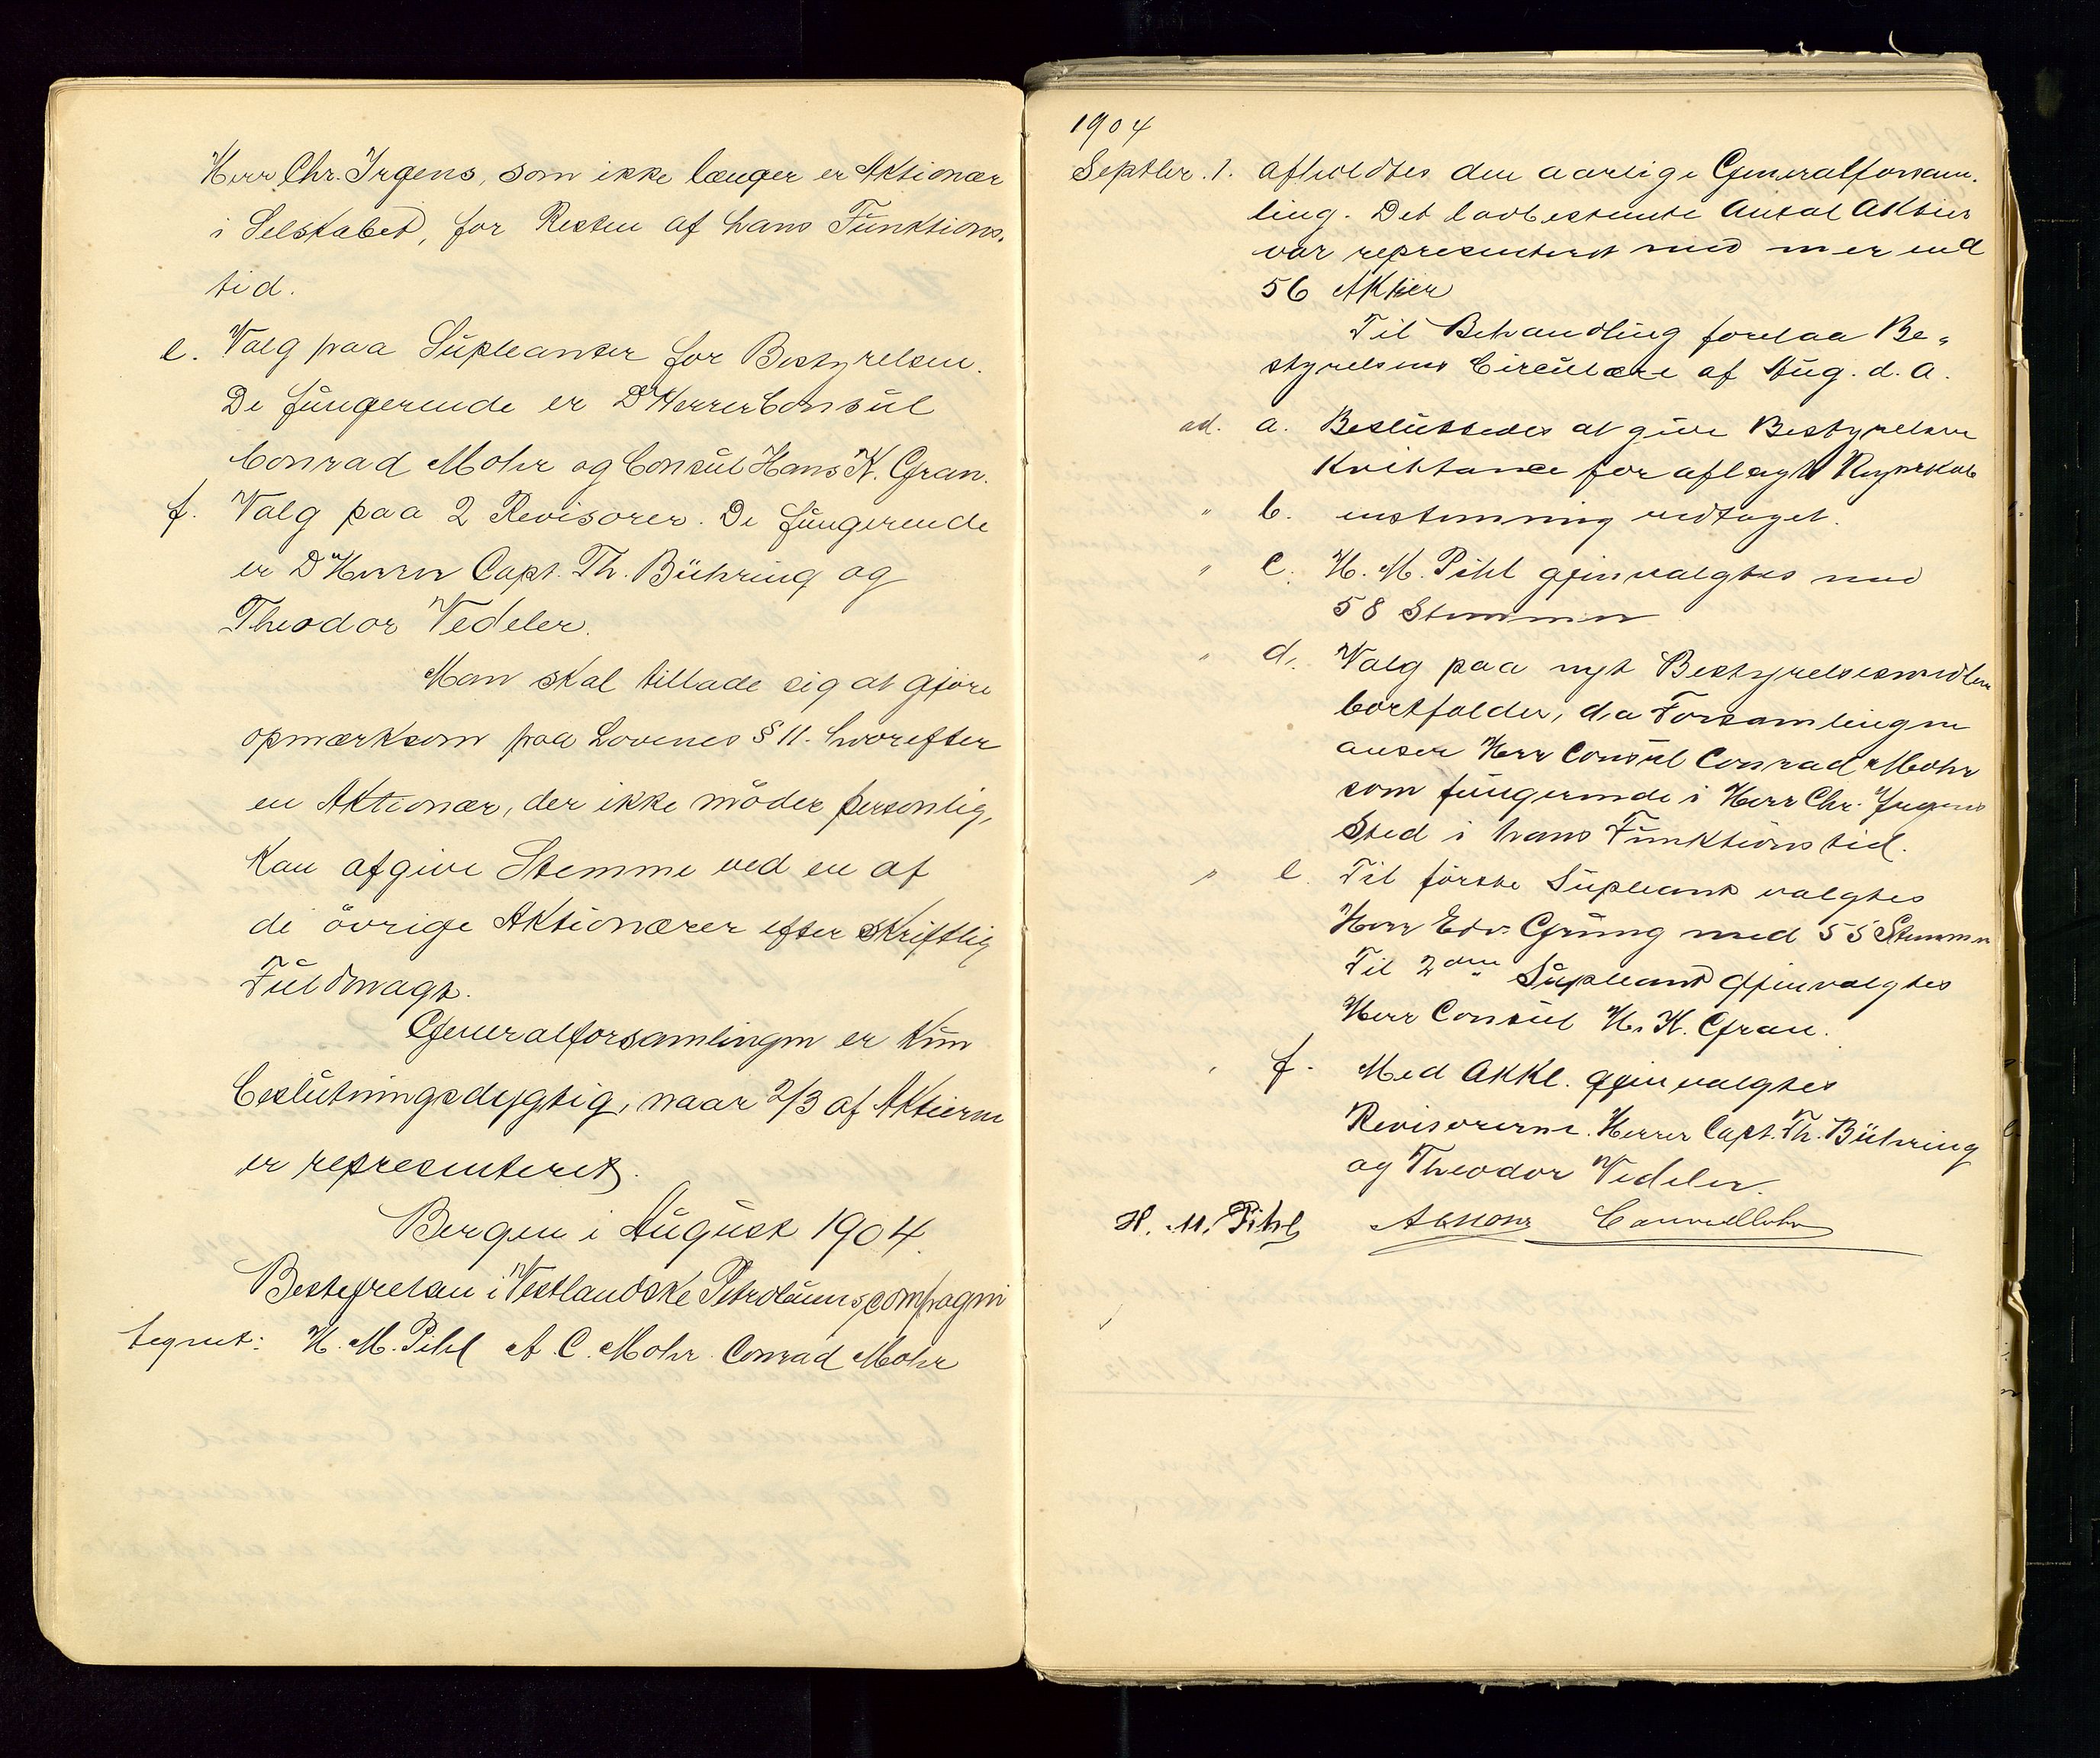 Herr Chr. Irgens, som ikke længer er Aktionær
i Selskabet, for Resten af hans Funktions-
tid.
e. Valg paa Supleanter for Bestyrelsen.
De fungerende er D'Herrer Consul
Conrad Mohr og Consul Hans K. Gran.
f. Valg paa 2 Revisorer. De fungerende
er D'Herrer Capt. Th. Bühring og
Theodor Vedeler.
Man skal tillade sig at gjøre
opmærksom paa Lovenes § 11. hvorefter
en Aktionær, der ikke möder personlig,
kan afgive Stemme ved en af
de övrige Aktionærer efter skriftlig
Fuldmagt.
Generalforsamlingen er kun
beslutningsdygtig, naar 2/3 af Aktierne
er representeret.
Bergen i August 1904.
Bestyrelsen i Vestlandske Petroleumscompagni
tegnet: H. M. Pihl A. C. Mohr Conrad Mohr
1904
Septbr. 1. afholdtes den aarlige Generalforsam-
ling. Det lovbestemte Antal Aktier
var representeret med mer end
56 Aktier
Til Behandling forelaa Be-
styrelsens Circulære af Aug. d. A.
ad. a. Besluttedes at give Bestyrelsen
Kvittance for aflagt Regnskab
" b. enstemmig vedtaget.
" c. H. M. Pihl gjenvalgtes med
58 Stemmer
" d. Valg paa nyt Bestyrelsesmedlem
bortfalder, da Forsamlingen
anser Herr Consul Conrad Mohr
som fungerende i Herr Chr. Irgens
Sted i hans Funktionstid.
" e. Til förste Supleant valgtes
Herr Edv. Grüng med 55 Stemmer
Til 2den Supleant gjenvalgtes
Herr Consul H. K. Gran.
" f. Med Akkl. gjenvalgtes
Revisorerne. Herrer Capt. Th. Bühring
og Theodor Vedeler.
H. M. Pihl ACMohr Conrad Mohr